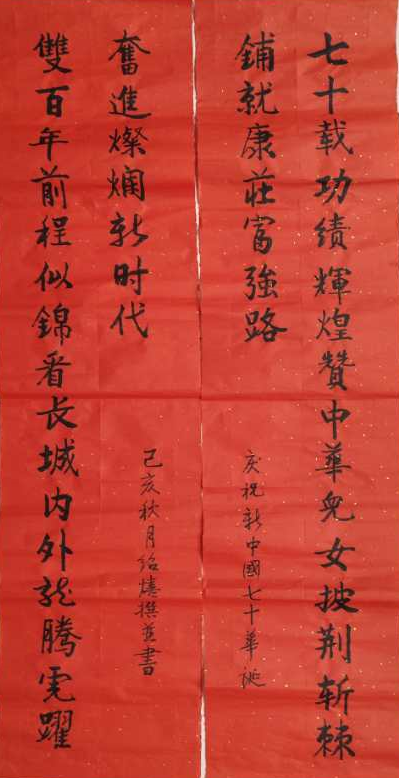 七十载功绩輝煌贊中華兒女披荆斩棘
鋪就康莊富強路
庆祝新中國七十華诞
雙百年前程似錦看长城内外龙腾虎躍
奮進燦爛新时代
己亥秋月绍撰並書